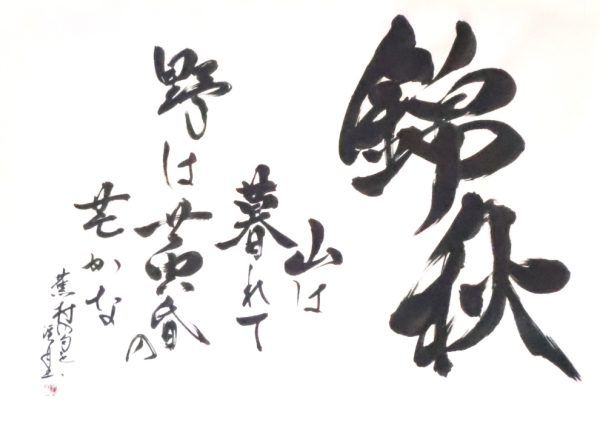 錦秋
山は
暮れて
野は黄昏の
芒かな
蕪村の句